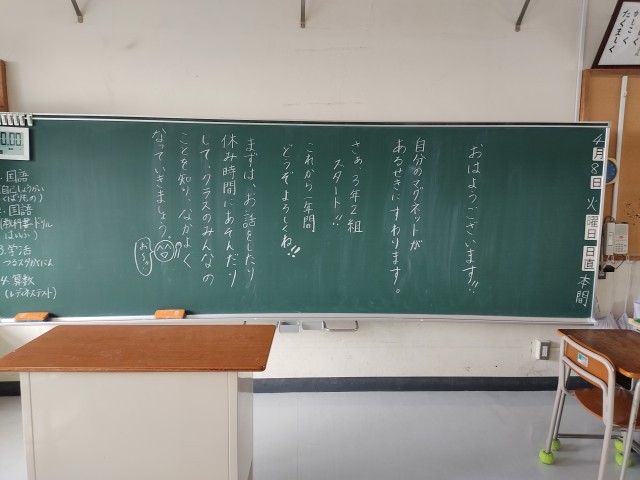 かしこく
たくましく
4月8日 火曜日 日直 本間
おはようございます!!
自分のマグネットが
あるせきにすわります。
さぁ、3年2組
スタート!!
これから一年間
どうぞよろしくね!!
まずは、お話をしたり
休み時間にあそんだり
して、クラスのみんなの
ことを知り、なかよく
なっていきましょう。
お〜っ
国語
自己しょうかい
くばりもの)
国語
(教科書・ドリル
3.学活
4.算数
(レディネステスト)